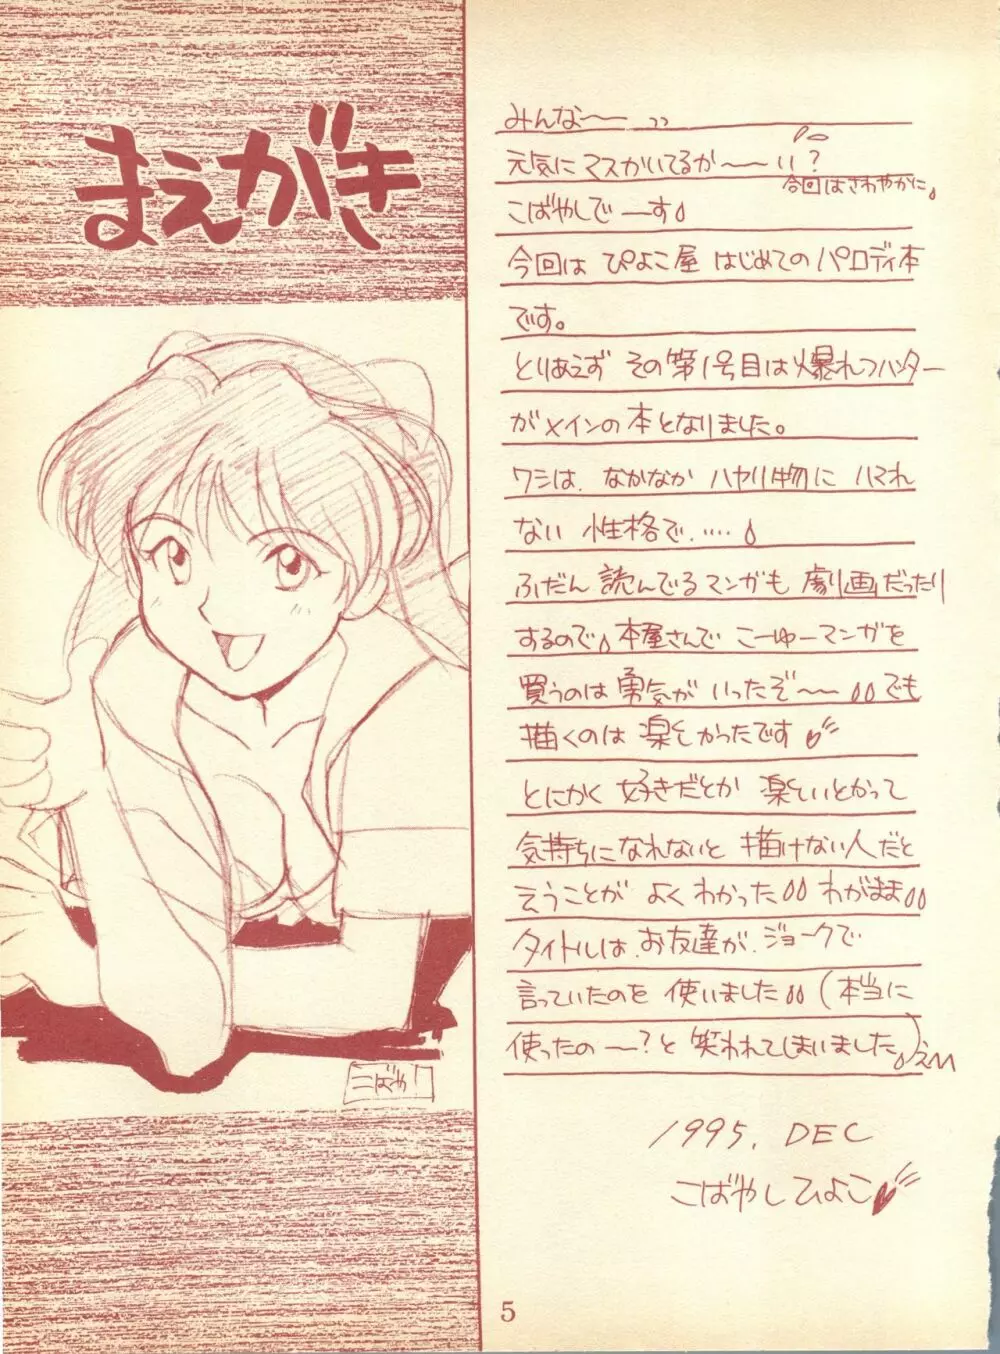 まえがき
みんな〜〜ッッ
元気にマスかいてるか〜〜い?
今回はさわやかに。
こばやしで―す
今回は ぴよこ屋 はじめてのパロディ本
です。
とりあえず その第1号目は爆れつハンター
がメインの本となりました。
ワシは、なかなか ハヤリ物に ハマれ
ない 性格で.‥‥
ふだん 読んでるマンガも 劇画だったり
するので 本屋さんで こーゆーマンガを
買うのは 勇気が いったぞ〜〜 でも
描くのは 楽しかったです
とにかく 好きだとか 楽しいとかって
気持ちになれないと 描けない人だと
ゆうことが よくわかった わがまま
タイトルは、お友達が、ジョークで
言っていたのを 使いました(本当に
使ったの―?と 笑われてしまいました)
1995. DEC
こばやしひよこ
こばや
5